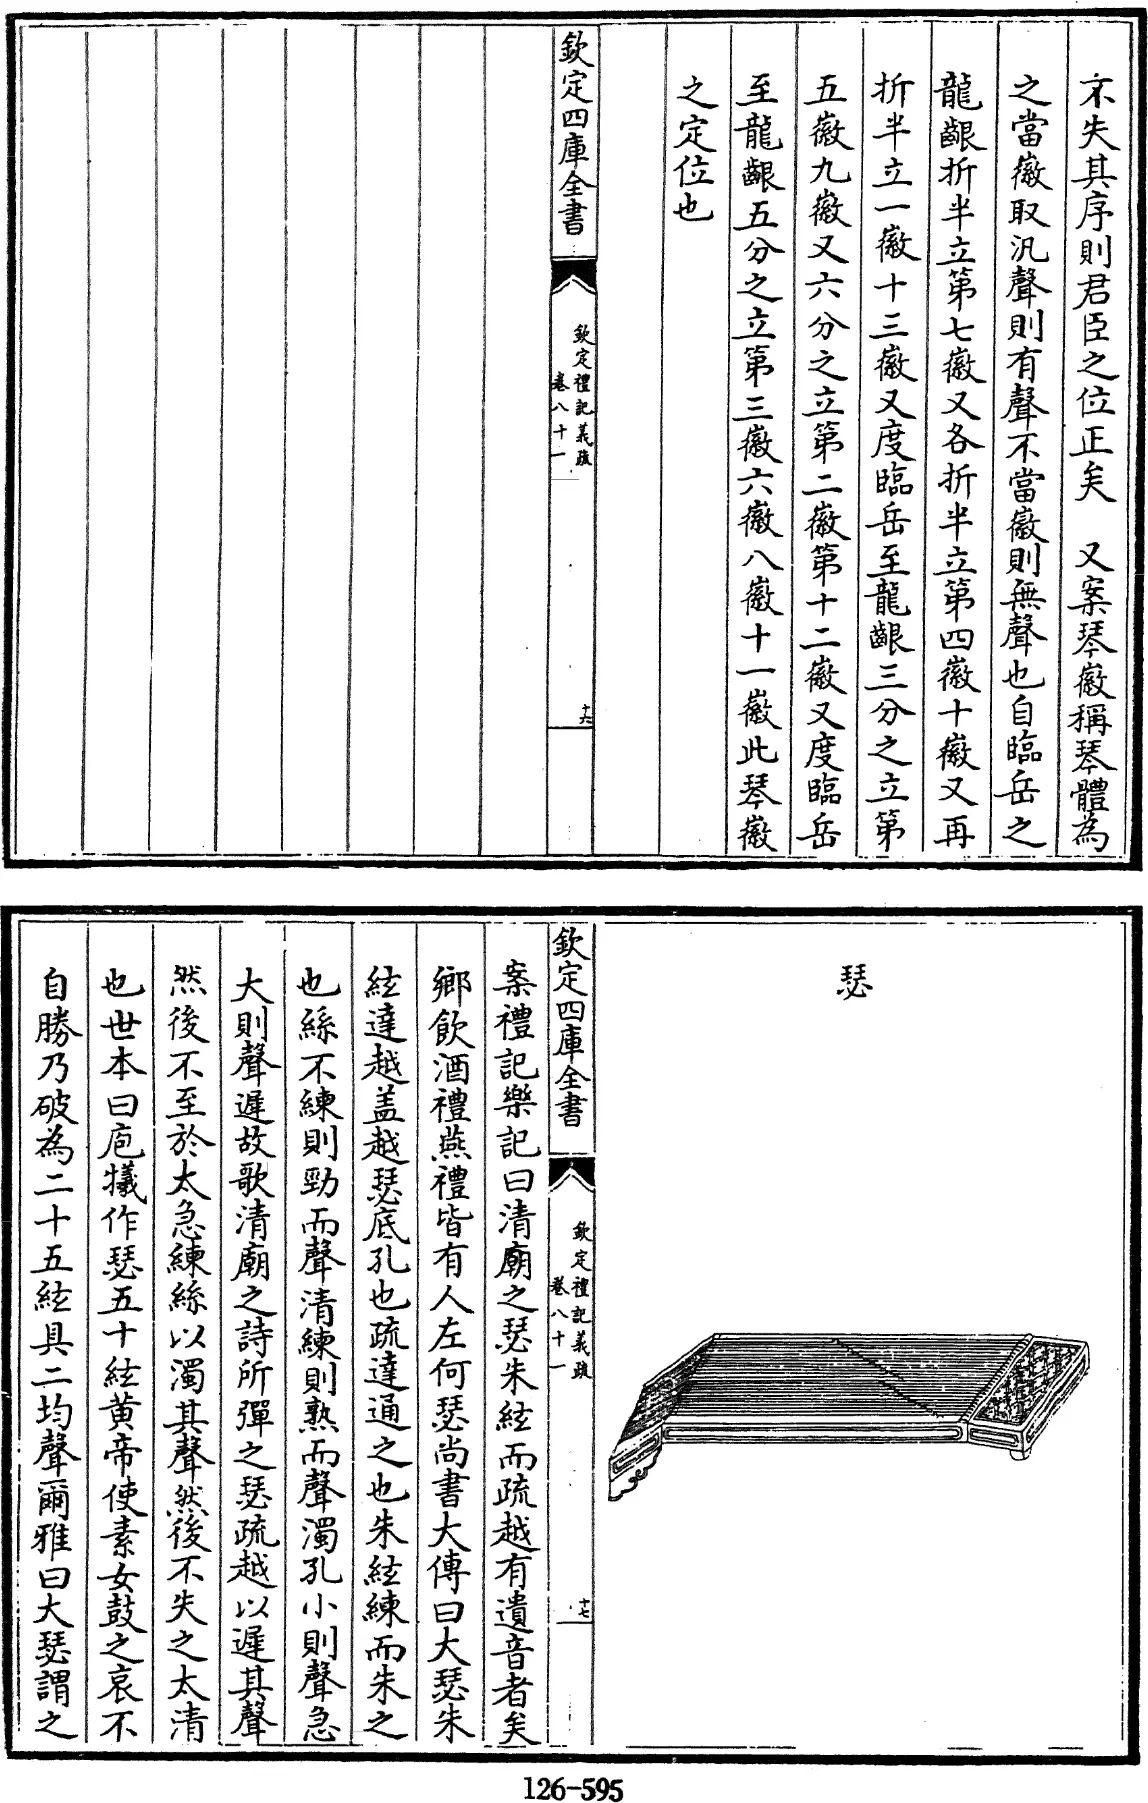 不失其序則君臣之位正矣　又案琴徽稱琴體為
之當徽取汎聲則有聲不當徽則無聲也自臨岳之
龍齦折半立第七徽又各折半立第四徽十徽又再
折半立一徽十三徽又度臨岳至龍齦三分之立第
五徽九徽又六分之立第二徽第十二徽又度臨岳
至龍齦五分之立第三徽六徽八徽十一徽此琴徽
之定位也
欽定四庫全書
欽定禮記義疏
卷八十一
十六
瑟
欽定四庫全書
欽定禮記義疏
卷八十一
十七
案禮記樂記曰清廟之瑟朱絃而疏越有遺音者矣
鄉飲酒禮燕禮皆有人左何瑟尚書大傳曰大瑟朱
絃達越盖越瑟底孔也疏達通之也朱絃練而朱之
也絲不練則勁而聲清練則熟而聲濁孔小則聲急
大則聲遲故歌清廟之詩所彈之瑟疏越以遲其聲
然後不至於太急練絲以濁其聲然後不失之太清
也世本曰庖犧作瑟五十絃黄帝使素女鼓之哀不
自勝乃破為二十五絃具二均聲爾雅曰大瑟謂之
126-595